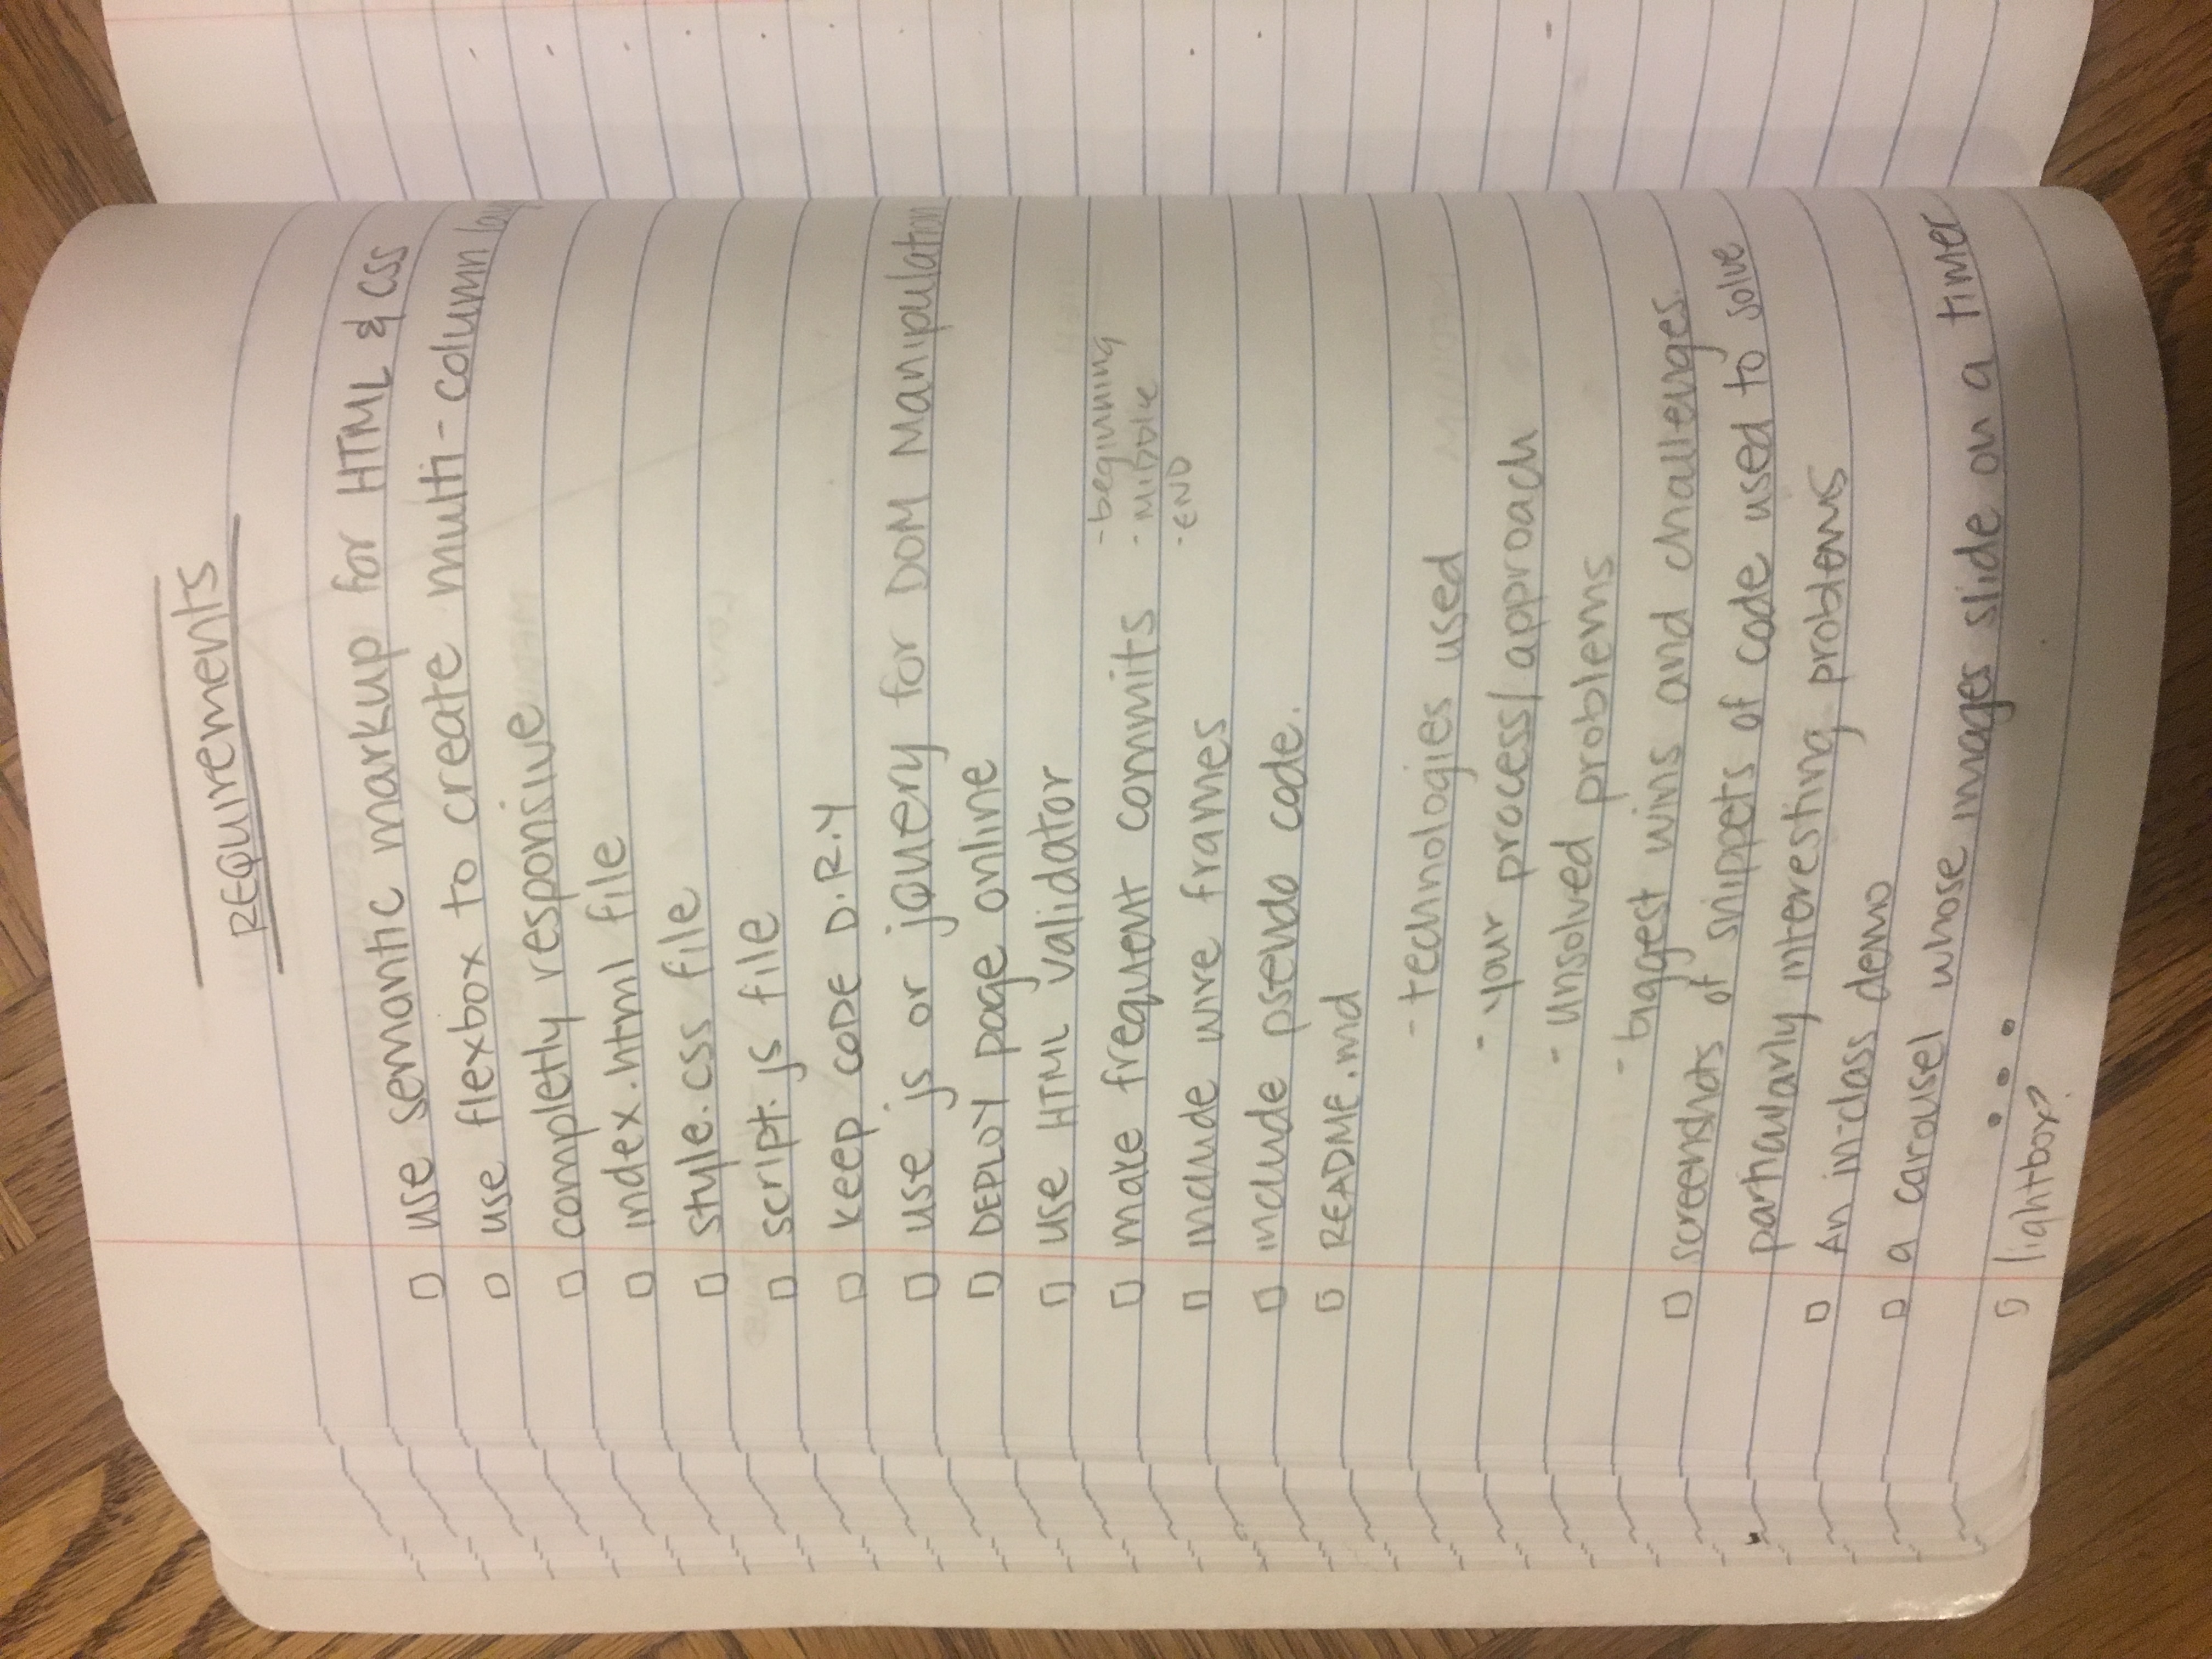 REQUIREMENTS
use semantic markup for HTML & CSS
use flexbox to create multi-column
completly responsive
index.html file
style.css file
script.js file
keep CODE D.R.Y
use js or jQuery for DOM Manipulation
DEPLOY page online
use HTML validator
make frequent commits
-beginning
-MIDDLE
-END
include wire frames
include pseudo code.
README.md
-technologies used
-your process/approach
-unsolved problems
-biggest wins and challenges.
screenshots of snippets of code used to solve
particularly interesting problems
An in-class demo
a carousel whose images slide on a timer
...
lightbox?